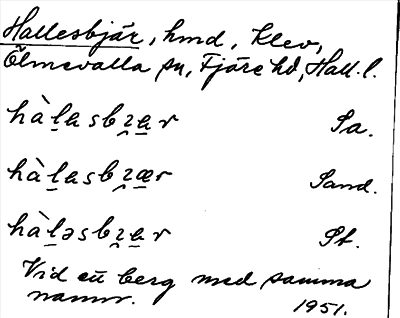 Hallesbjär, hmd, Klev,
Ölmevalla sn, Fjäre hd, Hall. l.
hàl̠asbɀ̯a̠r Sa.
hàl̠asbɀ̯æ̠r Sand.
hàl̠əsbɀ̯a̠r St.
Vid ett berg med samma
namn. 1951.